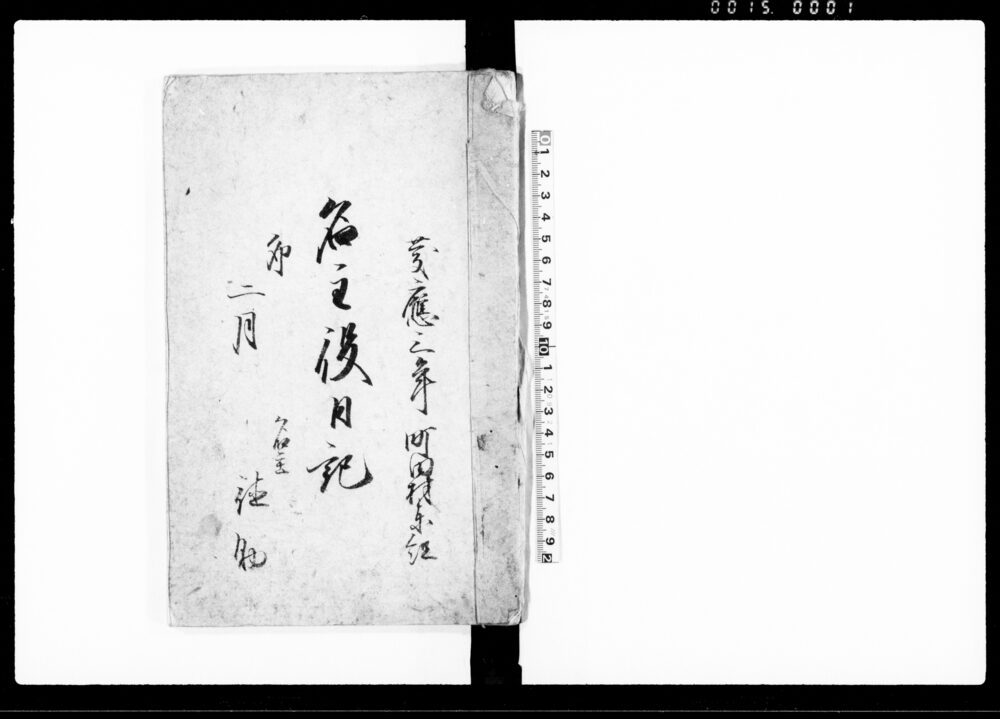 0015. 0001
慶應三年 町田村東組
名主役日記
卯
二月
名主
徳助
0 1 2 3 4 5 6 7 8 9 10 1 2 3 4 5 6 7 8 9 2